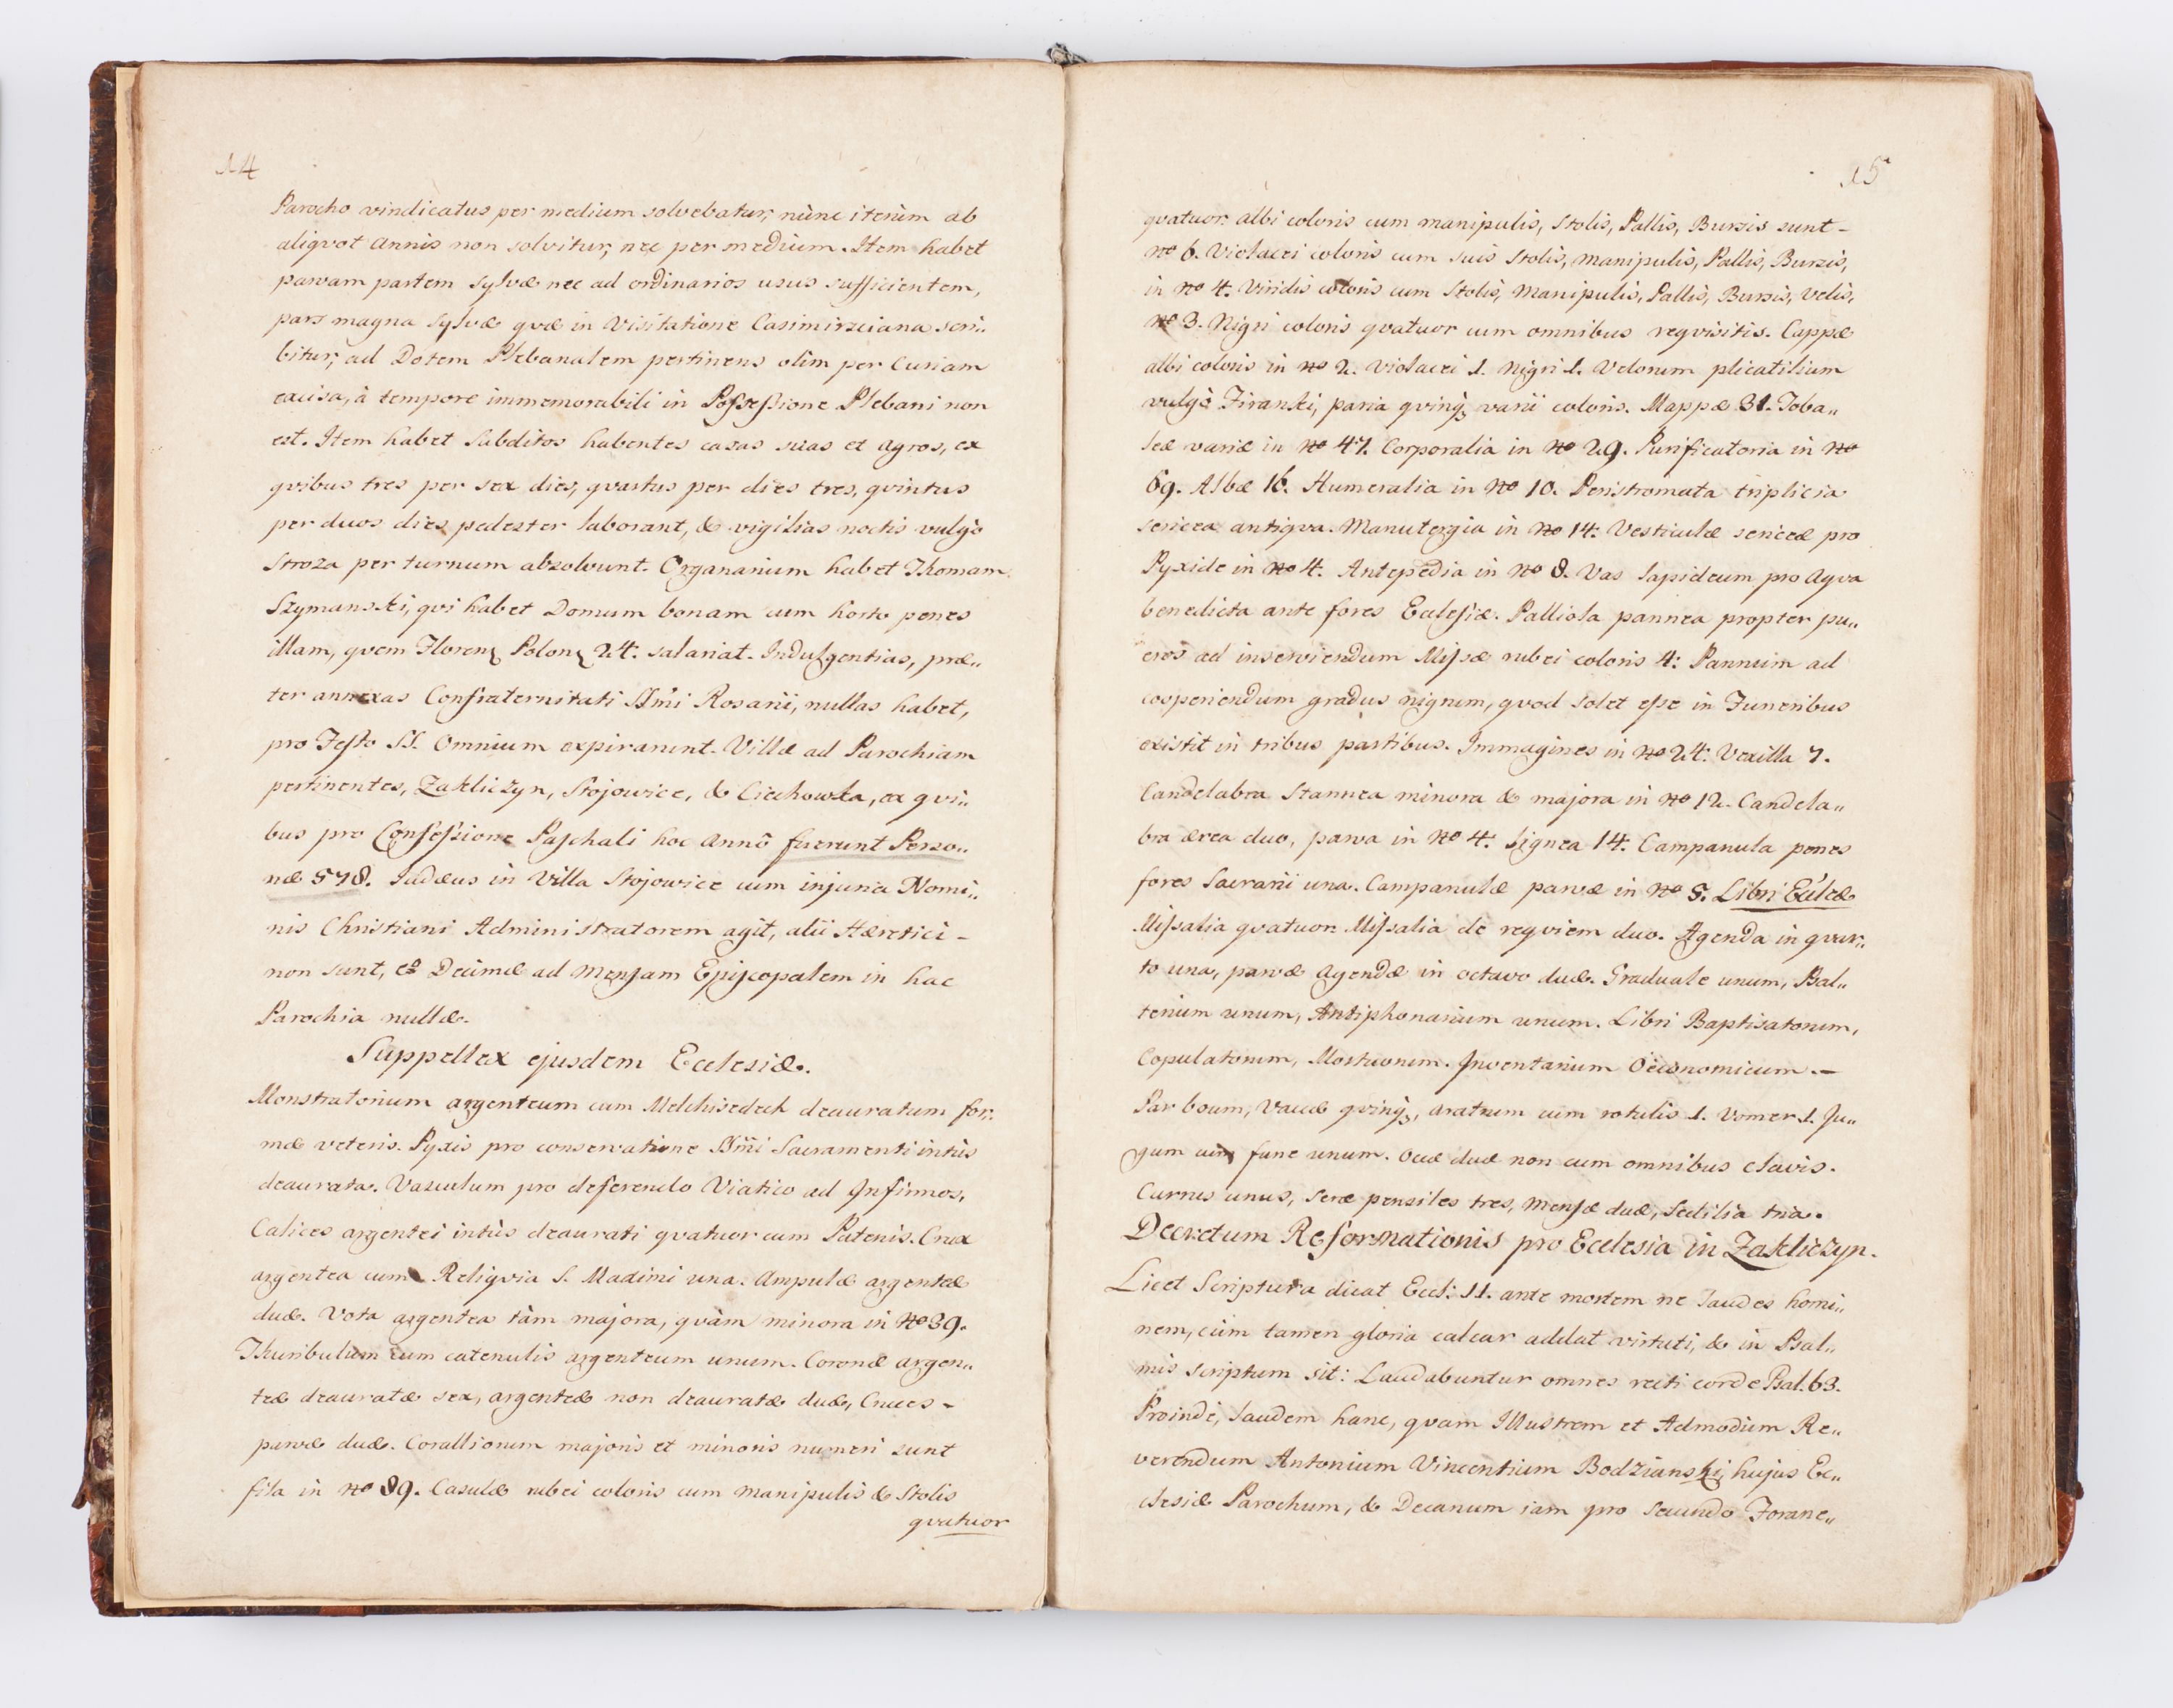 14
Parocho vindicatus per medium solvebatur, nùnc iterùm ab
aliqvot annis non solvitur, nec per medium. Item habet
parvam partem sylvæ nec ad ordinarios usus sufficientem,
pars magna sylvæ qvæ in Visitatione Casimirsciana scri„
bitur, ad Dotem Plebanalem pertinens olim per Curiam
excisa, à tempore immemorabili in Possessione Plebani non
est. Item habet Subditos habentes casas suas et agros, ex
qvibus tres per sex dies, qvartus per dies tres, qvintus
per duos dies pedester laborant, & vigilias noctis vulgò
Stroza per turnum absolvunt. Organarium habet Thomam
Szymanski, qvi habet Domum bonam cum horto penes
illam, qvem Florenꝫ Polonꝫ 24. salariat. Indulgentias, præ„
ter annexas Confraternitati SSmi Rosarii, nullas habet,
pro Festo SS. Omnium expirarunt. Villæ ad Parochiam
pertinentes, Zakliczyn, Stojowice, & Ciechowka, ex qvi„
bus pro Confessione Paschali hoc annô fuerunt Perso„
næ 578. Judæus in Villa Stojowice cum injuria Nomi„
nis Christiani Administratorem agit, alii Hæretici –
non sunt, eô Decimæ ad Mensam Episcopalem in hac
Parochia nullæ.
Suppellex ejusdem Ecclesiæ.
Monstratorium argenteum cum Melchisedech deauratum for„
mæ veteris. Pyxis pro conservatione SSmi Sacramenti intùs
deaurata. Vasculum pro deferendo Viatico ad Infirmos.
Calices argentei intùs deaurati qvatuor cum Patenis. Crux
argentea cum Reliqvia S. Maximi una. Ampulæ argenteæ
duæ. Vota argentea tàm majora, qvàm minora in No 39.
Thuribulum cum catenulis argenteum unum. Coronæ argen„
teæ deauratæ sex, argenteæ non deauratæ duæ, Cruces –
parvæ duæ. Corallionum majoris et minoris numeri sunt
fila in No 89. Casulæ rubei coloris cum manipulis & Stolis
qvatuor
15
qvatuor. albi coloris cum manipulis, Stolis, Pallis, Bursis sunt –
No 6. Violacei coloris cum suis Stolis, manipulis, Pallis, Bursis,
in No 4. Viridis coloris cum Stolis, Manipulis, Pallis, Bursis, Velis,
No 3. Nigri coloris qvatuor cum omnibus reqvisitis. Cappæ
albi coloris in No 2. Violacei 1. Nigri 1. Velorum plicatilium
vulgò Firanki, paria qvinqꝫ varii coloris. Mappæ 31. Toba„
leæ variæ in No 47. Corporalia in No 29. Purificatoria in No
69. Albæ 16. Humeralia in No 10. Peristromata triplicia
sericea antiqva. Manutergia in No 14. Vesticulæ sericeæ pro
Pyxide in No 4. Antepedia in No 8. Vas lapideum pro aqva
benedicta ante fores Ecclesiæ. Palliola pannea propter pu„
eros ad inserviendum Missæ rubei coloris 4: Pannum ad
cooperiendum gradus nigrum, qvod solet esse in Funeribus
existit in tribus partibus. Immagines in No 24. Vexilla 7.
Candelabra Stannea minora & majora in No 12. Candela„
bra ærea duo, parva in No 4. Lignea 14. Campanula penes
fores Sacrarii una. Campanulæ parvæ in No 5. Libri Eccl'æ
Missalia qvatuor. Missalia de reqviem duo. Agenda in qvar„
to una, parvæ agendæ in octavo duæ. Graduale unum, Psal„
terium unum, Antiphonarium unum. Libri Baptisatorum,
Copulatorum, Mortuorum. Inventarium Oeconomicum. –
Par boum, Vaccæ qvinqꝫ, aratrum cum rotulis 1. Vomer 1. Ju„
gum cum fune unum. Occæ duæ non cum omnibus clavis.
Currus unus, seræ pensiles tres, Mensæ duæ, Sedilia tria.
Decretum Reformationis pro Ecclesia in Zakliczyn.
Licet Scriptura dicat Eccl: 11. ante mortem ne laudes homi„
nem, cùm tamen gloria calcar addat virtuti, & in Psal„
mis scriptum sit: Laudabuntur omnes recti corde Psal. 63.
Proindè, laudem hanc, qvam Illustrem et Admodùm Re„
verendum Antonium Vincentium Bodzianski, hujus Ec„
clesiæ Parochum, & Decanum iam pro secundo Forane„